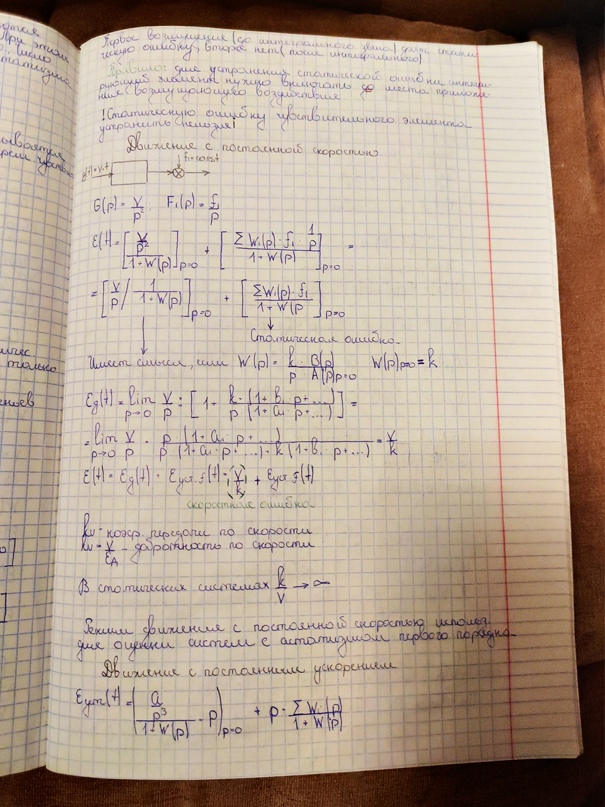 Первое возмущение (до интегрального звена) даёт стати-
ческую ошибку, второе нет (после интегрального)
Правило: для устранения статической ошибки интегри-
рующий элемент нужно включать до места приложе-
ния возмущающего воздействия
! Статическую ошибку чувствительного элемента
устранить нельзя!
Движение с постоянной скоростью
g(t)=v·t f=const
G(p) = V/p² F₁(p) = f₁/p
E(t) = [V/p² / 1+W(p)]p=0 + [ΣWᵢ(p)·fᵢ·1/p / 1+W(p)]p=0 =
= [V/p / 1/1+W(p)]p=0 + [ΣWᵢ(p)·f₁ / 1+W(p)]p=0
Статическая ошибка
Имеет смысл, если W(p) = k/p · B(p)/A(p) p=0 W(p)p=0 = k
Eg(t) = lim p→0 V/p : [1 + k·(1+b₁p+...)/p(1+a₁p+...)] =
= lim p→0 V/p · p(1+a₁·p+...)/p(1+a₁·p+...)+k(1+b₁·p+...) = V/k
E(t) = Eg(t) + Eуст.f(t) = (V/k) + Eуст.f(t)
скоростная ошибка
kv - коэф. передачи по скорости
kv = V/Eд - добротность по скорости
В статических системах k/V → ∞
Режим движение с постоянной скоростью использ.
для оценки систем с астатизмом первого порядка
Движение с постоянным ускорением
Eуст(t) = (a/p³ / 1+W(p) · p)p=0 + p · ΣWᵢ(p)/1+W(p)